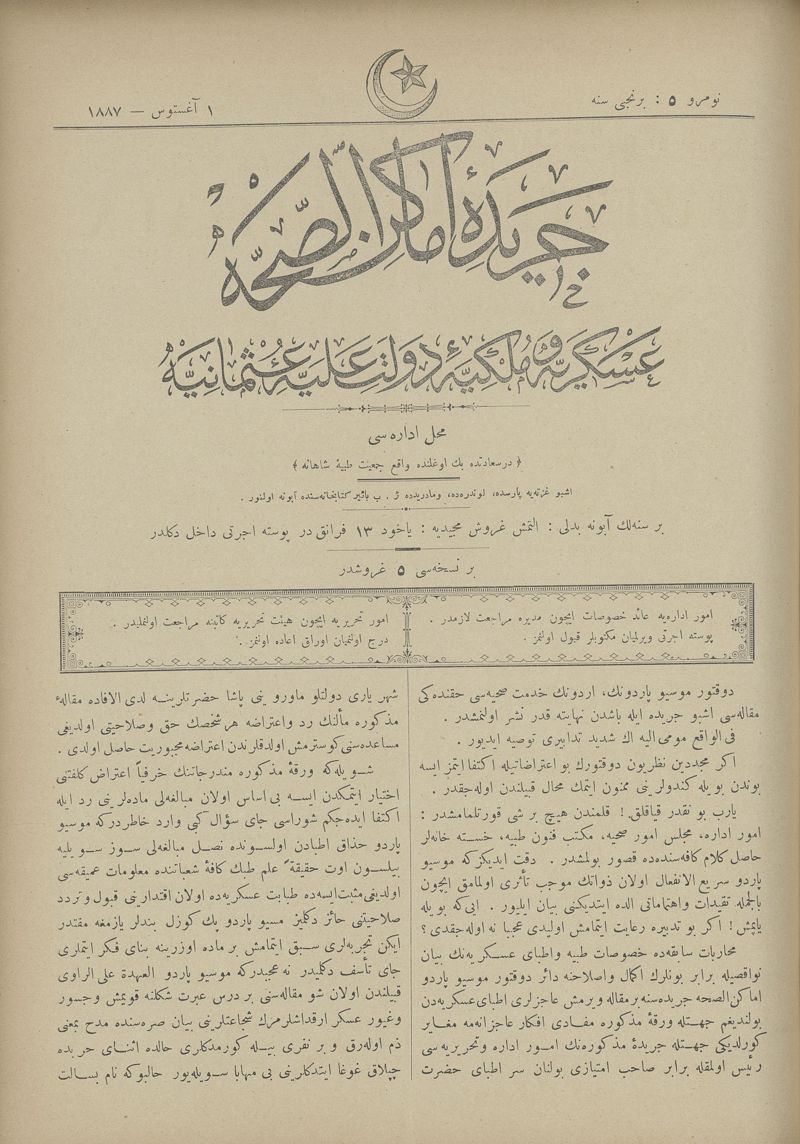 نومرو ۵ : برنجی سنه
۱ آغستوس — ۱۸۸۷
جریدهٔ اماکن الصّحّه
عسکریه و ملکیهٔ دولت علیهٔ عثمانیه
محل اداره‌سی
﴿ درسعادتده بك اوغلنده واقع جمعیت طبیهٔ شاهانه ﴾
اشبو غزته‌یه پارسده، لوندره‌ده، ومادریدده ژ . ب بائیر کتابخانه‌سنده آبونه اولنور .
بر سنه‌لك آبونه بدلی : التمش غروش مجیدیه : یاخود ۱۳ فرانق در پوسته اجرتی داخل دکلدر
بر نسخه‌سی ۵ غروشدر
امور اداریه‌یه عائد خصوصات ایچون مدیره مراجعت لازمدر .
پوسته اجرتی ویرلمیان مکتوبلر قبول اولنمز .
امور تحریریه ایچون هیئت تحریریه کاتبنه مراجعت اولنملیدر .
درج اولنمیان اوراق اعاده اولنمز .
دوقتور موسیو پاردونك، اردونك خدمت صحیه‌سی حقنده‌کی
مقاله‌سی اشبو جریده ایله باشدن نهایته قدر نشر اولنمشدر .
فی الواقع مومی الیه اك شدید تدابیری توصیه ایدیور .
اکر مجددین نظریون دوقتورك بو اعتراضاتیله اکتفا ایتمز ایسه
بوندن بویله کندولرینی ممنون ایتمك محال قبیلندن اوله‌جقدر .
یارب بو نقدر قیاقلق ! قلمندن هیچ بر شی قورتلمامشدر :
امور اداره، مجلس امور صحیه، مکتب فنون طبیه، خسته خانه‌لر
حاصل کلام کافه‌سنده‌ده قصور بولمشدر . دقت ایدیکزکه موسیو
پاردو سریع الانفعال اولان ذواتك موجب تأثری اولمامق ایچون
بالجمله تقیدات واهتماماتی الده ایتدیکنی بیان ایلیور . ایی‌که بویله
یاپمش ! اکر بو تدبیره رعایت ایتمامش اولیدی عجبا نه اوله‌جقدی ؟
محاربات سابقه‌ده خصوصات طبیه واطبای عسکریه‌نك بیان
نواقصیله برابر بونلرك اکمال واصلاحنه دائر دوقتور موسیو پاردو
اماکن الصحه جریده‌سنه بر مقاله ویرمش عاجزلری اطبای عسکریه‌دن
بولندیغم جهتله ورقهٔ مذکوره مفادی افکار عاجزانه‌مه مغایر
کورلدیکی جهتله جریدهٔ مذکوره‌نك امور اداره وتحریریه‌سی
رئیس اولمقله برابر صاحب امتیازی بولنان سر اطبای حضرت
شهر یاری دولتلو ماورو ینی پاشا حضرتلرینه لدی الافاده مقالهٔ
مذکوره مآلنك رد واعتراضه هر شخصك حق وصلاحیتی اولدیغی
مساعده‌سنی کوسترمش اولدقلرندن اعتراضه مجبوریت حاصل اولدی .
شویله‌که ورقهٔ مذکوره مندرجاتنك حرفیاً اعتراض کلفتنی
اختیار ایتمکدن ایسه بی‌اساس اولان مبالغه‌لی ماده‌لرینی رد ایله
اکتفا ایده‌جکم شوراسی جای سؤال کبی وارد خاطردرکه موسیو
پاردو حذاق اطبادن اولسونده نصل مبالغه‌لی سوز سویلیه
بیلسون اوت حقیقةً علم طبك کافهٔ شعباتنده معلومات عمیقه‌سی
اولدیغی مثبت ایسه‌ده طبابت عسکریه‌ده اولان اقتدارینی قبول وتردد
صلاحیتنی حائز دکلیز مسیو پاردو پك کوزل بندلر یازمغه مقتدر
ایکن تجربه‌لری سبق ایتمامش بر ماده اوزرینه بنای فکر ایتملری
جای تأسف دکلیدر نه عجیدرکه موسیو پاردو العهدة علی الراوی
قبیلندن اولان شو مقاله‌سنی بر درس عبرت شکلنه قویمش وجسور
وغیور عسکر ارقداشلرمزك شجاعتلرینی بیان صره‌سنده مدح بمعنی
ذم اوله‌رق و بر نفری بیله کورمدکلری حالده اثنای حربده
چپلاق غوغا ایتدکلرینی بی مهابا سویله‌یور حالبوکه نام بسالت